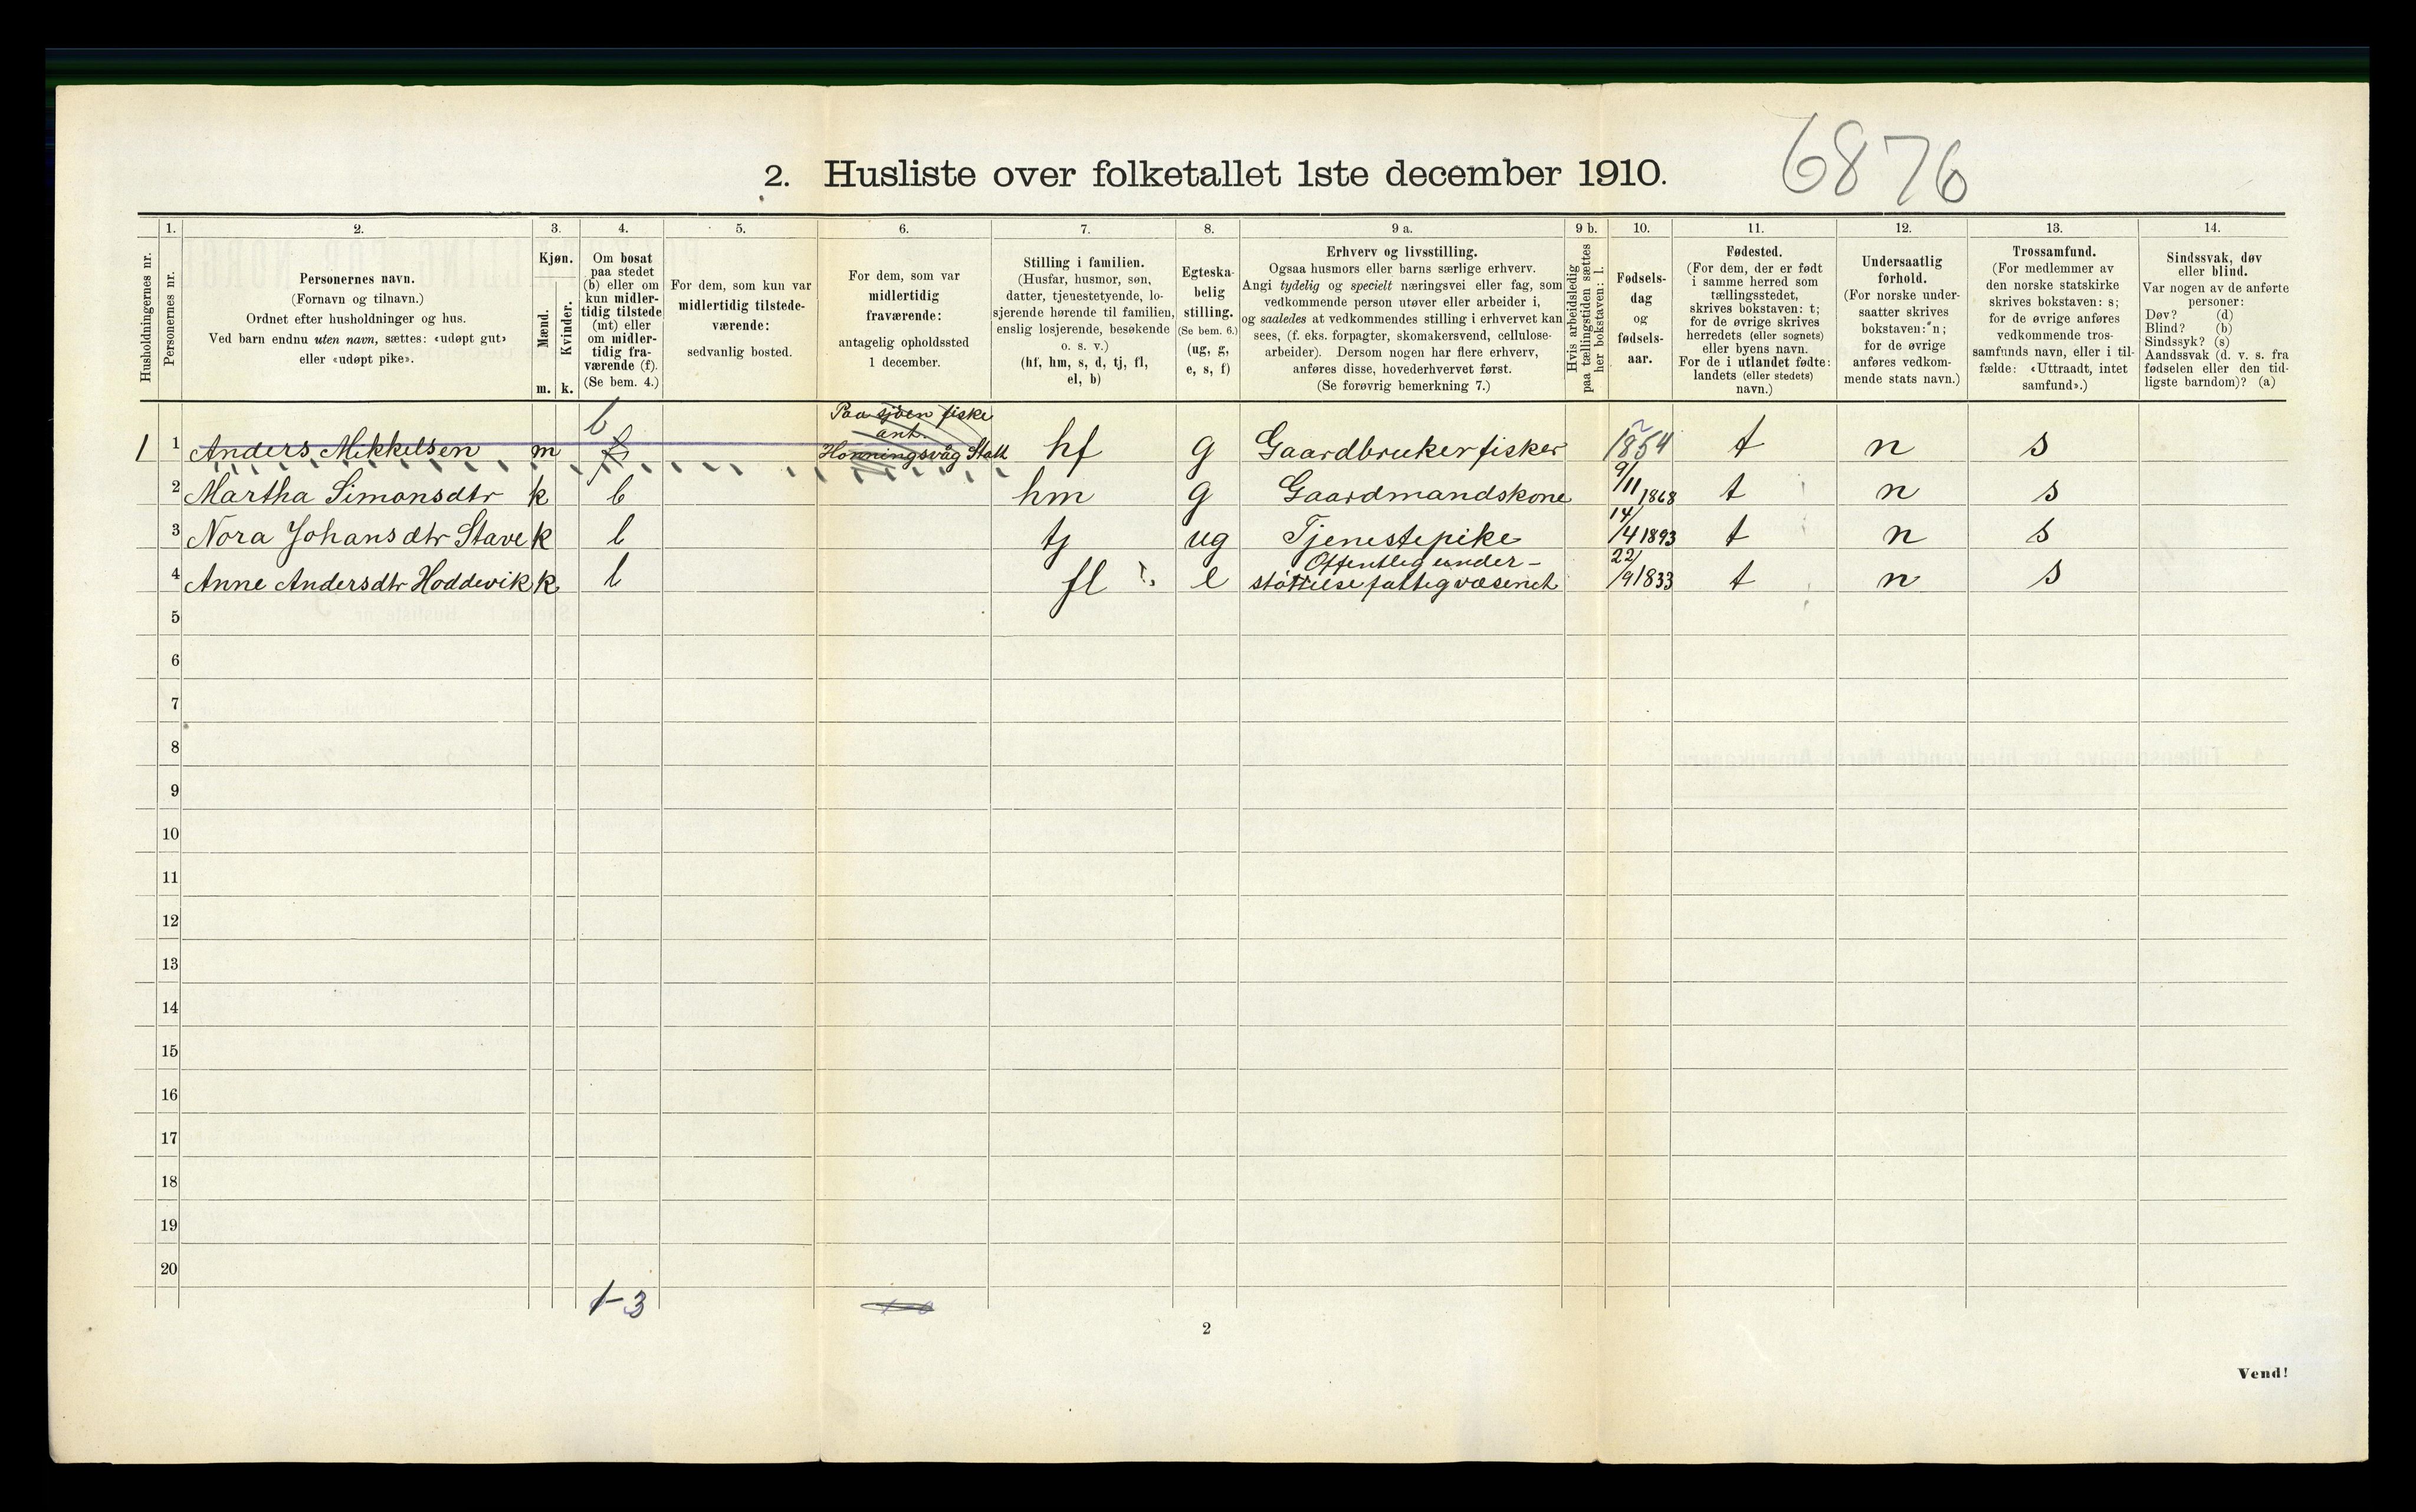 6876
2. Husliste over folketallet 1ste december 1910.
Husholdningernes nr.
1.
Personernes nr.
2.
Personernes navn.
(Fornavn og tilnavn.)
Ordnet efter husholdninger og hus.
Ved barn endnu uten navn, sættes: «udøpt gut»
eller «udøpt pike».
3.
Kjøn.
Mænd.
Kvinder.
m. k.
4.
Om bosat
paa stedet
(b) eller om
kun midler-
tidig tilstede
(mt) eller
om midler-
tidig fra-
værende (f).
(Se bem. 4.)
5.
For dem, som kun var
midlertidig tilstede-
værende:
sedvanlig bosted.
6.
For dem, som var
midlertidig
fraværende:
antagelig opholdssted
1 december.
7.
Stilling i familien.
(Husfar, husmor, søn,
datter, tjenestetyende, lo-
sjerende hørende til familien,
enslig losjerende, besøkende
o. s. v.)
(hf, hm, s, d, tj, fl,
el, b)
8.
Egteska-
belig
stilling.
(Se bem. 6.)
(ug, g,
e, s, f)
9 a.
Erhverv og livsstilling.
Ogsaa husmors eller barns særlige erhverv.
Angi tydelig og specielt næringsvei eller fag, som
vedkommende person utøver eller arbeider i,
og saaledes at vedkommendes stilling i erhvervet kan
sees, (f. eks. forpagter, skomakersvend, cellulose-
arbeider). Dersom nogen har flere erhverv,
anføres disse, hovederhvervet først.
(Se forøvrig bemerkning 7.)
9 b.
Hvis arbeidsledig
paa tællingstiden sættes
her bokstaven: l.
10.
Fødsels-
dag
og
fødsels-
aar.
11.
Fødested.
(For dem, der er født
i samme herred som
tællingsstedet,
skrives bokstaven: t;
for de øvrige skrives
herredets (eller sognets)
eller byens navn.
For de i utlandet fødte:
landets (eller stedets)
navn.)
12.
Undersaatlig
forhold.
(For norske under-
saatter skrives
bokstaven: n;
for de øvrige
anføres vedkom-
mende stats navn.)
13.
Trossamfund.
(For medlemmer av
den norske statskirke
skrives bokstaven: s;
for de øvrige anføres
vedkommende tros-
samfunds navn, eller i til-
fælde: «Uttraadt, intet
samfund».)
14.
Sindssvak, døv
eller blind.
Var nogen av de anførte
personer:
Døv? (d)
Blind? (b)
Sindssyk? (s)
Aandssvak (d. v. s. fra
fødselen eller den tid-
ligste barndom)? (a)
b Paa sjöen fiske
ant.
1 1 Anders Mikkelsen m f Honningsvåg Stath hf g Gaardbruker fisker 1854 t n s
2 Martha Simonsdtr k b hm g Gaardmandskone 9/11 1868 t n s
3 Nora Johansdtr Stave k b tj ug Tjenestepike 14/4 1893 t n s
Offentlig under-
4 Anne Andersdtr Hoddevik k b fl e støttelse fattigvæsenet 22/9 1833 t n s
5
6
7
8
9
10
11
12
13
14
15
16
17
18
19
20
1-3
2
Vend!